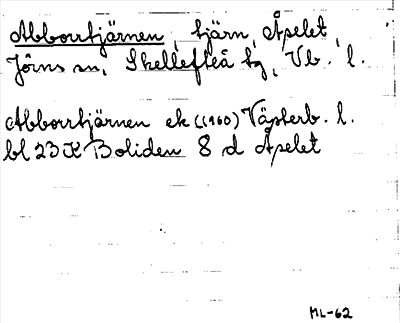 Abborrtjärnen, tjärn, Åselet,
Jörns sn, Skellefteå tg, Vb. l.
Abborrtjärnen ek ((1960) Västerb. l.
bl 23 K Boliden 8 d Åselet
ML-62